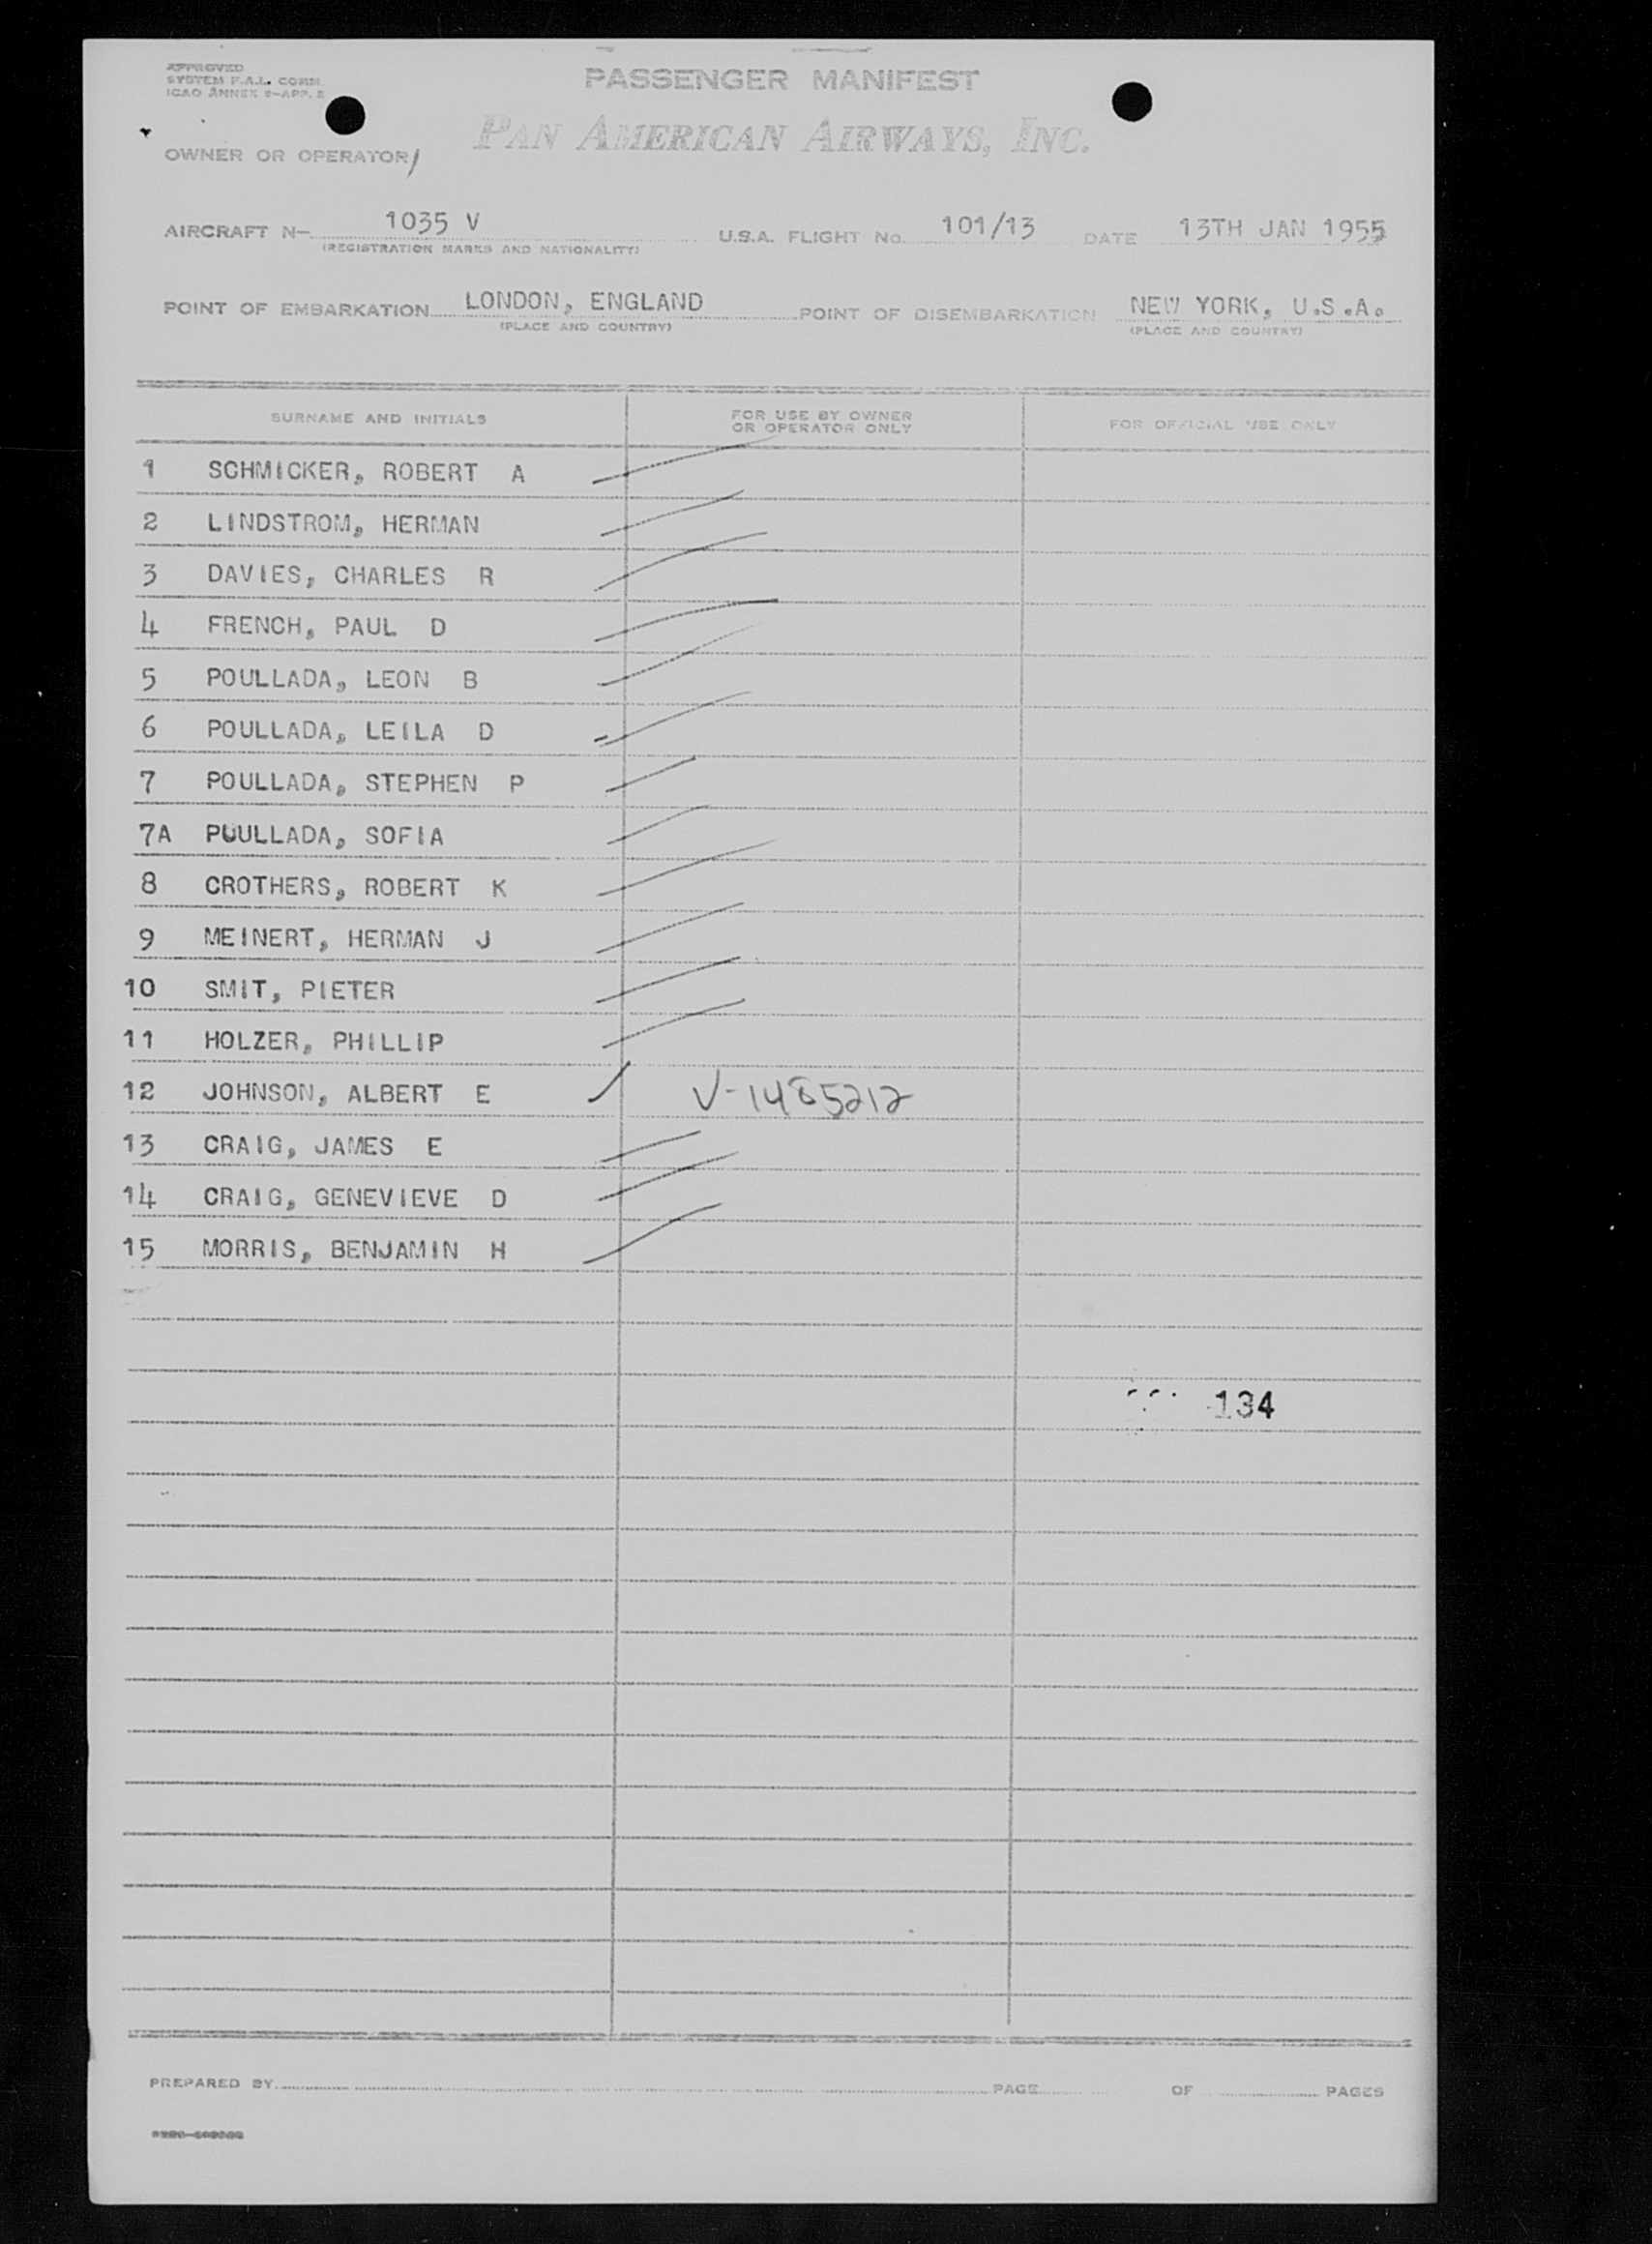 APPROVED
SYSTEM F.A.L. COMM.
ICAO ANNEX 9-APP. 2
PASSENGER MANIFEST
OWNER OR OPERATOR/ PAN AMERICAN AIRWAYS, INC.
AIRCRAFT N- 1035 V U.S.A. FLIGHT No. 101/13 DATE 13TH JAN 1955
(REGISTRATION MARKS AND NATIONALITY)
POINT OF EMBARKATION LONDON, ENGLAND POINT OF DISEMBARKATION NEW YORK, U.S.A.
(PLACE AND COUNTRY) (PLACE AND COUNTRY)
SURNAME AND INITIALS FOR USE BY OWNER OR OPERATOR ONLY FOR OFFICIAL USE ONLY
1 SCHMICKER, ROBERT A
2 LINDSTROM, HERMAN
3 DAVIES, CHARLES R
4 FRENCH, PAUL D
5 POULLADA, LEON B
6 POULLADA, LEILA D
7 POULLADA, STEPHEN P
7A POULLADA, SOFIA
8 CROTHERS, ROBERT K
9 MEINERT, HERMAN J
10 SMIT, PIETER
11 HOLZER, PHILLIP
12 JOHNSON, ALBERT E V-1485212
13 CRAIG, JAMES E
14 CRAIG, GENEVIEVE D
15 MORRIS, BENJAMIN H
134
PREPARED BY PAGE OF PAGES